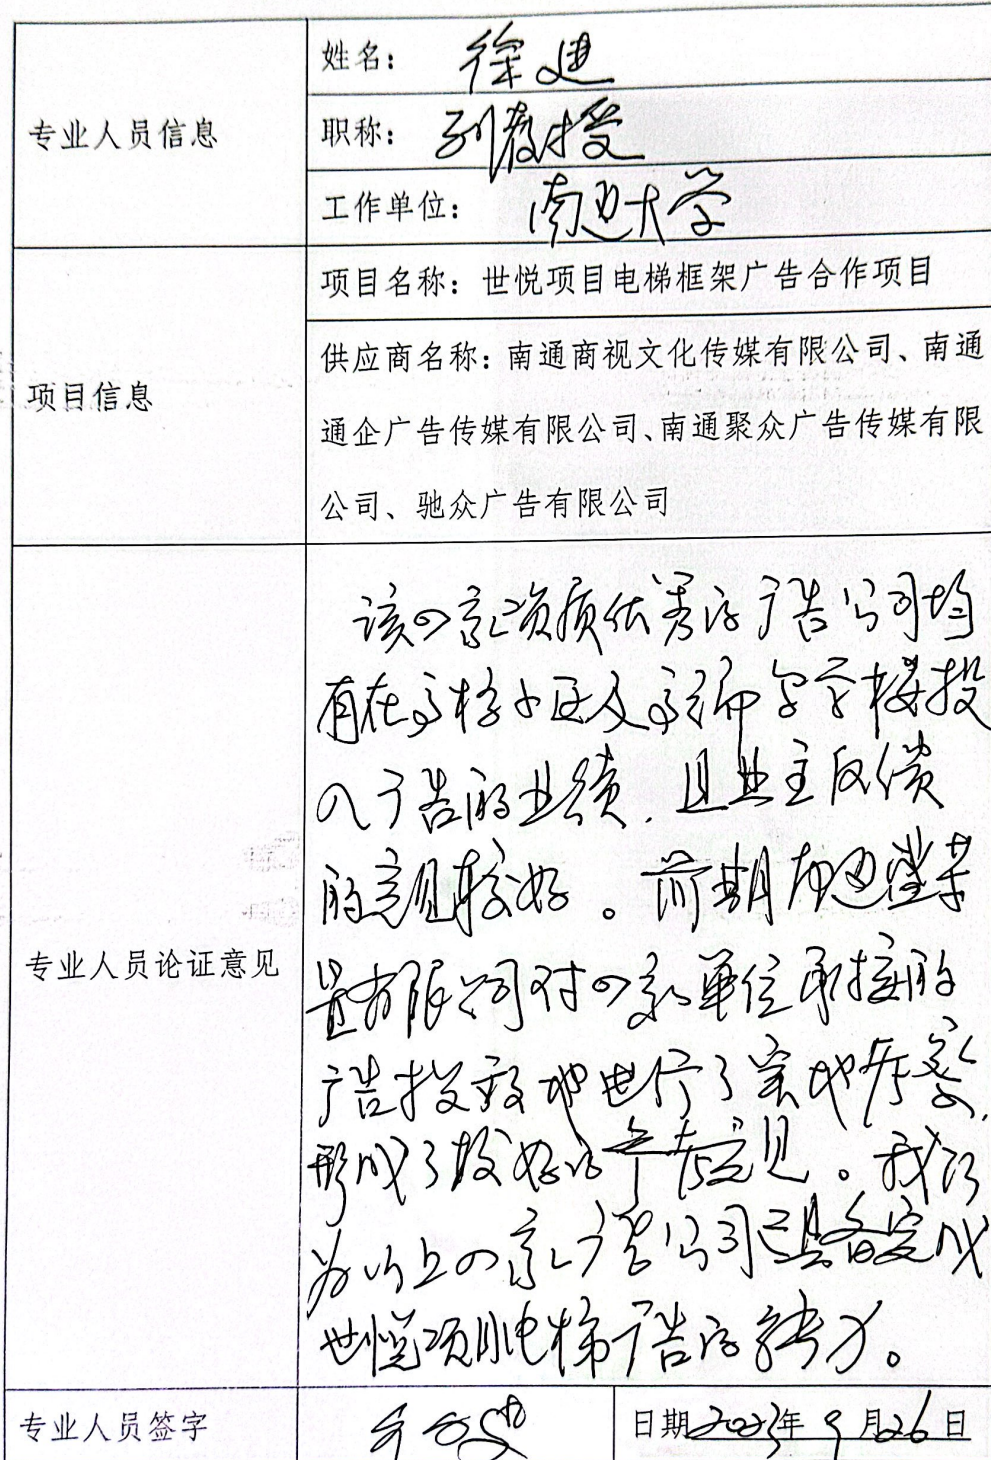 专业人员信息
姓名: 徐建
职称: 副教授
工作单位: 南通大学
项目信息
项目名称: 世悦项目电梯框架广告合作项目
供应商名称: 南通商视文化传媒有限公司、南通
通企广告传媒有限公司、南通聚众广告传媒有限
公司、驰众广告有限公司
专业人员论证意见
该四家资质优秀的广告公司均
有在高档小区及高端写字楼投
入广告的业绩,且业主反馈
的意见较好。前期南通
有限公司对四家单位承接的
广告投放地进行了实地考察,
形成了较好的考察意见。我认
为以上四家广告公司已具备完成
世悦项目电梯广告的能力。
专业人员签字
日期 2023年9月26日